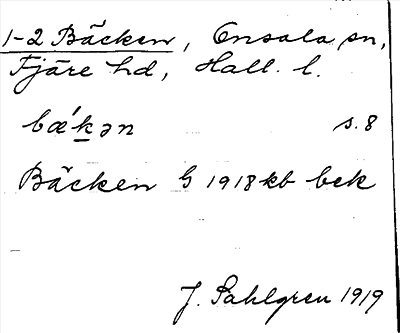 1-2 Bäcken, Onsala sn,
Fjäre hd, Hall. l.
bæ´kən s. 8
Bäcken G 1918 kb bck
J. Sahlgren 1919